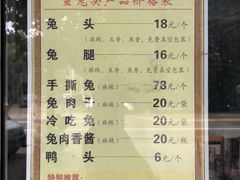 壹兔头产品价格表
兔 头 18元/个
(麻辣、五香、鱼香,免费真空包装)
兔 腿 16元/个
(麻辣、五香、鱼香,免费真空包装)
手 撕 兔 (麻辣) 73元/个
兔 肉 干 (麻辣) 20元/袋
冷 吃 兔 (麻辣) 20元/袋
兔肉香酱 (麻辣) 20元/瓶
鸭 头 6元/个
特别推荐: